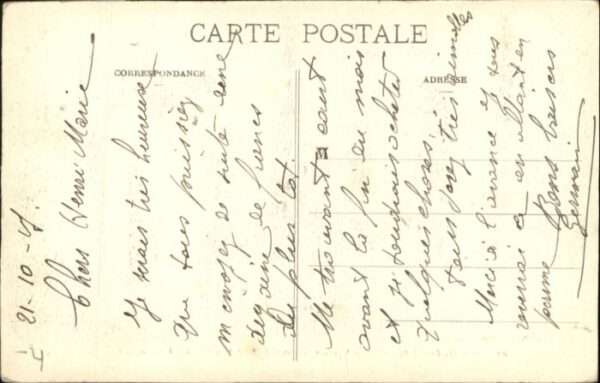 CARTE POSTALE
CORRESPONDANCE
ADRESSE
21-10-
Chers Henri Marie
Je serais très heureuse
que vous puissiez
m'envoyer de suite une
dizaine de francs
au plus tôt.
Me trouvant a court
avant la fin du mois
et je voudrais acheter
quelques choses.
très
Merci à l'avance et vous
en allant en
Bons baisers
Germain